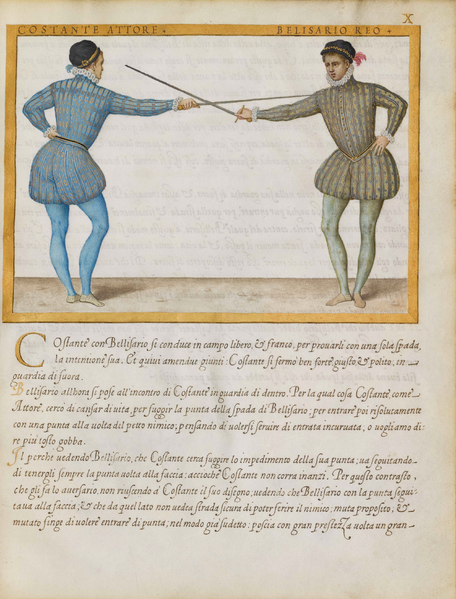 X
COSTANTE ATTORE •
BELISARIO REO •
COstante con Bellisario si conduce in campo libero, & franco, per prouarli con una sola spada,
la intentione sua. Et quiui amendue giunti: Costante si fermò ben forte giusto, & polito, in
guardia di fuora.
Bellisario allhora si pose all'incontro di Costante in guardia di dentro. Per la qual cosa Costante come
Attore, cercò di cansar di uita, per fuggir la punta della spada di Bellisario; per entrare poi risolutamente
con una punta alla uolta del petto nimico; pensando di uolersi seruire di entrata incuruata, o uogliamo di=
re piu tosto gobba.
Il perche uedendo Bellisario, che Costante cerca fuggire lo impedimento della sua punta; ua seguitando=
di tenergli sempre la punta uolta alla faccia: accioche Costante non corra inanzi. Per questo contrasto,
che gli fa lo auersario, non riuscendo à Costante il suo disegno; uedendo che Bellisario con la punta segui=
taua alla faccia; & che da quel lato non uedea strada sicura di poter ferire il nimico; muta proposito, &=
mutato finge di uolere entrare di punta, nel modo già sudetto: poscia con gran prestezza uolta un gran=